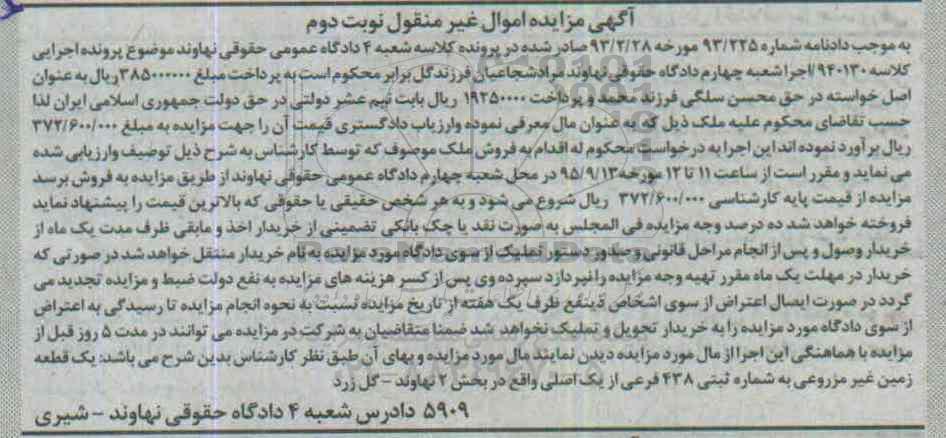 آگهی مزایده اموال غیر منقول نوبت دوم
به موجب دادنامه شماره ۹۳/۲۲۵ مورخه ۹۲/۲/۲۸ صادر شده در پرونده کلاسه شعبه ۴ دادگاه عمومی حقوقی نهاوند موضوع پرونده اجرایی
کلاسه ۹۴۰۱۳۰/اجرا شعبه چهارم دادگاه حقوقی نهاوند مراد شجاعیان فرزند گل برابر محکوم است به پرداخت مبلغ ۳۸۵۰۰۰۰۰۰ ریال به عنوان
اصل خواسته در حق محسن سلگی فرزند محمد و پرداخت ۱۹۲۵۰۰۰۰ ریال بابت نیم عشر دولتی در حق دولت جمهوری اسلامی ایران لذا
حسب تقاضای محکوم علیه ملک ذیل که به عنوان مال معرفی نموده وارزیاب دادگستری قیمت آن را جهت مزایده به مبلغ ۳۷۲/۶۰۰/۰۰۰
ریال بر آورد نموده اند این اجرا به درخواست محکوم له اقدام به فروش ملک موصوف که توسط کارشناس به شرح ذیل توصیف وارزیابی شده
می نماید و مقرر است از ساعت ۱۱ تا ۱۲ مورخه ۹۵/۹/۱۳ در محل شعبه چهارم دادگاه عمومی حقوقی نهاوند از طریق مزایده به فروش برسد
مزایده از قیمت پایه کارشناسی ۳۷۲/۶۰۰/۰۰۰ ریال شروع می شود و به هر شخص حقیقی یا حقوقی که بالاترین قیمت را پیشنهاد نماید
فروخته خواهد شد ده درصد وجه مزایده فی المجلس به صورت نقد یا چک بانکی تضمینی از خریدار اخذ و مابقی ظرف مدت یک ماه از
خریدار وصول و پس از انجام مراحل قانونی و صدور دستور تملیک از سوی دادگاه مورد مزایده به نام خریدار منتقل خواهد شد در صورتی که
خریدار در مهلت یک ماه مقرر تهیه وجه مزایده را نپردازد سپرده وی پس از کسر هزینه های مزایده به نفع دولت ضبط و مزایده تجدید می
گردد در صورت ایصال اعتراض از سوی اشخاص ذینفع ظرف یک هفته از تاریخ مزایده نسبت به نحوه انجام مزایده تا رسیدگی به اعتراض
از سوی دادگاه مورد مزایده را به خریدار تحویل و تملیک نخواهد شد ضمنا متقاضیان به شرکت در مزایده می توانند در مدت ۵ روز قبل از
مزایده با هماهنگی این اجرا از مال مورد مزایده دیدن نمایند مال مورد مزایده و بهای آن طبق نظر کارشناس بدین شرح می باشد: یک قطعه
زمین غیر مزروعی به شماره ثبتی ۴۳۸ فرعی از یک اصلی واقع در بخش ۲ نهاوند – گل زرد
۵۹۰۹ دادرس شعبه ۴ دادگاه حقوقی نهاوند – شیری